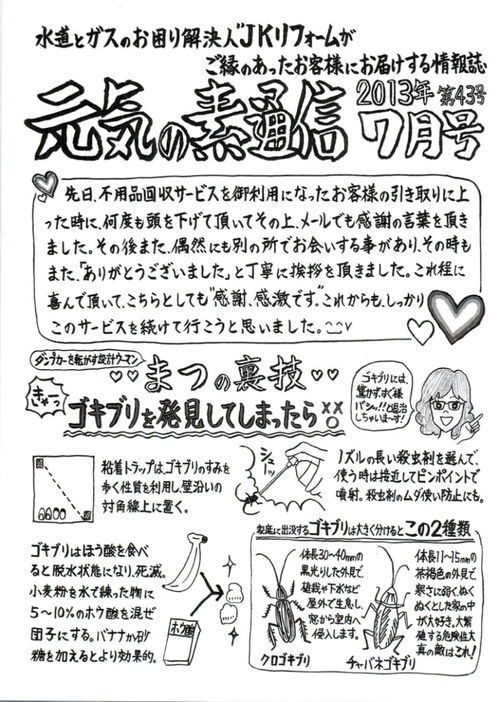 水道とガスのお困り解決人"JKリフォームが
ご縁のあったお客様にお届けする情報誌
元気の素通信
2013年 第43号
7月号
先日、不用品回収サービスを御利用になったお客様の引き取りに上
った時に、何度も頭を下げて頂いてその上、メールでも感謝の言葉を頂き
ました。その後また、偶然にも別の所でお会いする事があり、その時も
また、「ありがとうございました」と丁寧に挨拶を頂きました。これ程に
喜んで頂いて、こちらとしても"感謝、感激です。"これからも、しっかり
このサービスを続けて行こうと思いました。
ダンプカーを転がす設計ウーマン
まつの裏技
きゃっ
ゴキブリを発見してしまったら
ゴキブリには、
驚かずすぐ様
バシッ!!と退治
しちゃいま〜す!
粘着トラップは、ゴキブリのすみを
歩く性質を利用し、壁沿いの
対角線上に置く。
シューッ
ノズルの長い殺虫剤を選んで、
使う時は接近してピンポイントで
噴射。殺虫剤のムダ使い防止にも。
ゴキブリはほう酸を食べ
ると脱水状態になり、死滅。
小麦粉を水で練った物に
5〜10%のホウ酸を混ぜ
団子にする。バナナか砂
糖を加えるとより効果的。
ホウ酸
家庭に出没するゴキブリは大きく分けるとこの2種類
体長30〜40mmの
黒光りした外見で、
植栽や下水など
屋外で生息し、
窓から室内へ
侵入します。
クロゴキブリ
体長11〜15mmの
茶褐色の外見で、
寒さに弱く、ぬく
ぬくとした家の中
が大好き。大繁
殖する危険性大
真の敵はこれ!
チャバネゴキブリ